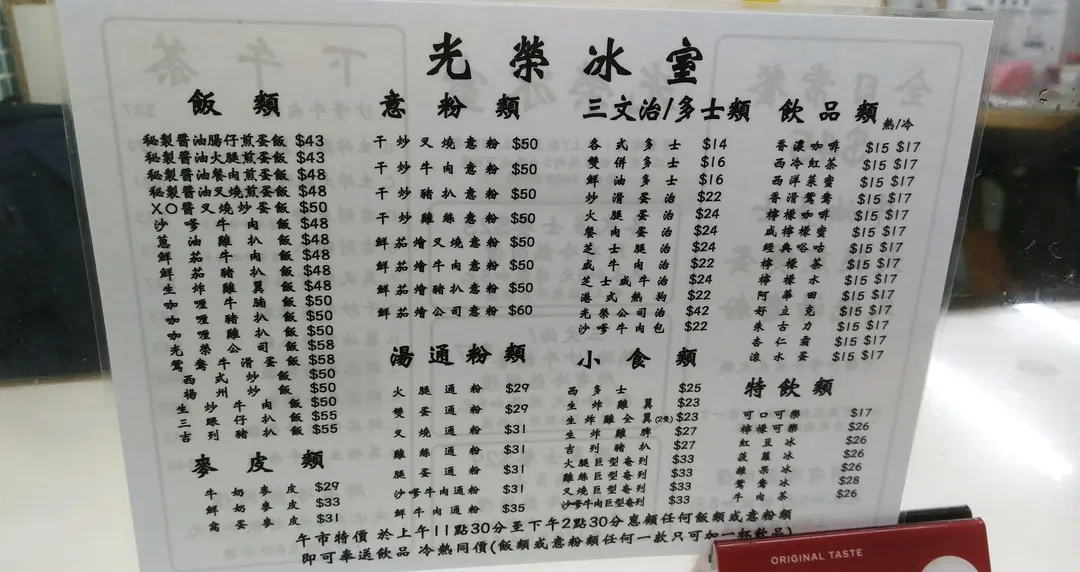 光榮冰室
飯類
秘製醬油腸仔煎蛋飯 $43
秘製醬油火腿煎蛋飯 $43
秘製醬油餐肉煎蛋飯 $48
秘製醬油叉燒煎蛋飯 $48
XO醬叉燒炒蛋飯 $50
沙嗲牛肉飯 $48
蔥油雞扒飯 $48
鮮茄牛肉飯 $48
鮮茄豬扒飯 $48
生炸雞翼飯 $48
咖喱牛腩飯 $50
咖喱豬扒飯 $50
咖喱雞扒飯 $50
光榮公司飯 $58
鴛鴦牛滑蛋飯 $58
西式炒飯 $50
楊州炒飯 $50
生炒牛肉飯 $50
三眼仔扒飯 $55
吉列豬扒飯 $55
麥皮類
牛奶麥皮 $29
鮮奶麥皮 $33
窩蛋麥皮 $31
意粉類
干炒叉燒意粉 $50
干炒牛肉意粉 $50
干炒豬扒意粉 $50
干炒雞絲意粉 $50
鮮茄燴叉燒意粉 $50
鮮茄燴牛肉意粉 $50
鮮茄燴豬扒意粉 $50
鮮茄燴公司意粉 $60
湯通粉類
火腿通粉 $29
雙蛋通粉 $29
叉燒通粉 $31
雞絲通粉 $31
腿蛋通粉 $31
沙嗲牛肉通粉 $31
鮮牛肉通粉 $35
三文治/多士類
各式多士 $14
雙併多士 $16
鮮油多士 $16
炒滑蛋治 $22
火腿蛋治 $24
餐肉蛋治 $24
芝士腿治 $24
咸牛肉治 $22
芝士咸牛治 $24
港式熱狗 $22
光榮公司治 $42
沙嗲牛肉包 $22
小食類
西多士 $25
生炸雞翼 $23
生炸雞全翼(2隻) $23
生炸雞脾 $27
吉列豬扒 $27
火腿巨型卷列 $33
雞絲巨型卷列 $33
叉燒巨型卷列 $33
沙嗲牛肉巨型卷列 $33
飲品類 熱/冷
香濃咖啡 $15 $17
西冷紅茶 $15 $17
西洋菜蜜 $15 $17
香滑鴛鴦 $15 $17
檸檬咖啡 $15 $17
咸檸檬蜜 $15 $17
經典唂咕 $15 $17
檸檬茶 $15 $17
檸檬水 $15 $17
阿華田 $15 $17
好立克 $15 $17
朱古力 $15 $17
杏仁霜 $15 $17
滾水蛋 $15 $17
特飲類
可口可樂 $17
檸檬可樂 $26
紅豆冰 $26
菠蘿冰 $26
雜果冰 $26
鴛鴦冰 $28
牛肉茶 $26
午市特價 於上午11點30分至下午2點30分惠顧任何飯類或意粉類
即可奉送飲品 冷熱同價(飯類或意粉類任何一款只可加一杯飲品)
ORIGINAL TASTE